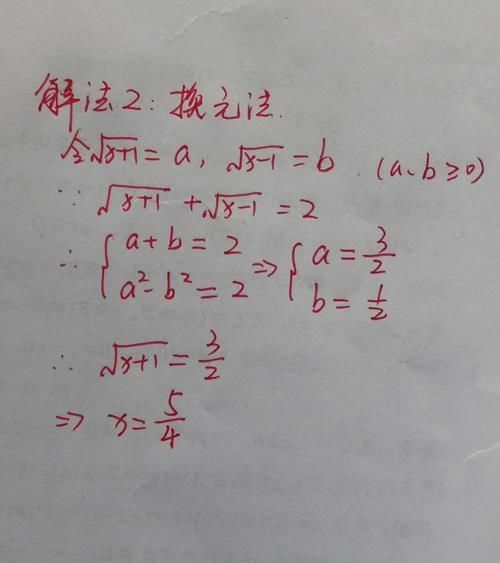 解法2：换元法.
令√(x+1) = a, √(x-1) = b. (a、b≥0)
∵ √(x+1) + √(x-1) = 2
∴ { a+b=2 a²-b²=2 ⇒ { a=3/2 b=1/2
∴ √(x+1) = 3/2
⇒ x=5/4